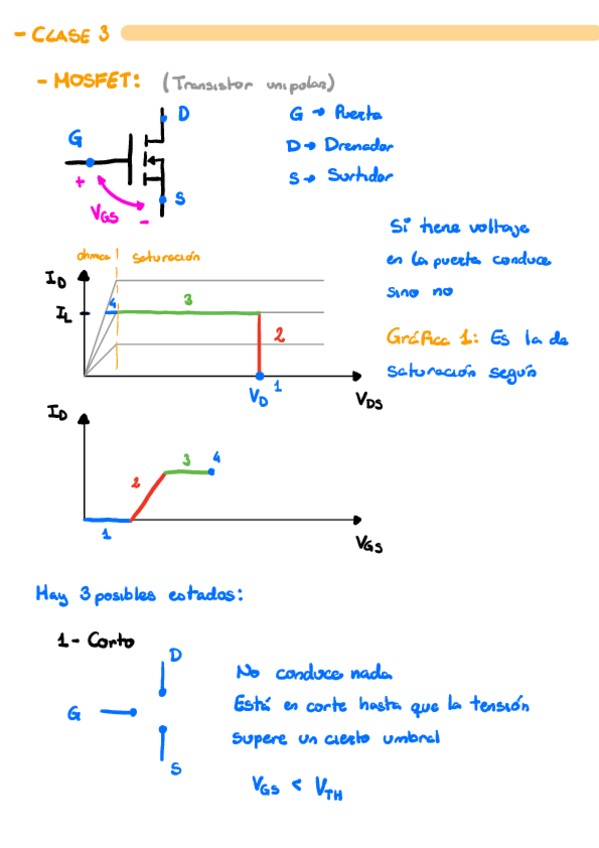 - CLASE 3
- MOSFET: (Transistor unipolar)
D
G
+
VGS
-
S
G → Puerta
D → Drenador
S → Surtidor
Si tiene voltaje
en la puerta conduce
sino no
ohmica | saturación
ID
IL
4
3
2
1
VD
VDS
Gráfica 1: Es la de
saturación según
ID
1
2
3
4
VGS
Hay 3 posibles estados:
1- Corto
D
G
S
No conduce nada
Está en corte hasta que la tensión
supere un cierto umbral
VGS < VTH